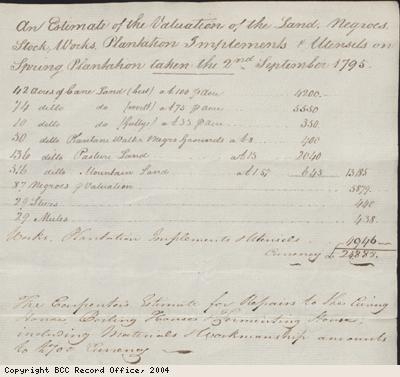 An Estimate of the Valuation of the Land, Negroes,
Stock, Works, Plantation Implements & Utensils on
Spring Plantation taken the 2nd September 1795.
42 Acres of Cane Land (best) a £100 p acre 4200.
74 ditto do (worst) a £75 p acre 5550
10 ditto do (Gullys) a £35 p acre 350.
50 ditto Plantane Walks Negro Grounds a £8 400
136 ditto Pasture Land a £15 2040
516 ditto Mountain Land 645 13185
87 Negroes p Valuation 5879.
29 Steers 440
29 Mules 438.
Works, Plantation Implements & Utensils 4946
Currency £ 24888.
The Carpenter's Estimate for Repairs to the Curing
House Boiling Houses & Fermenting House,
including Materials & Workmanship amounts
to £700 Currency
Copyright BCC Record Office, 2004